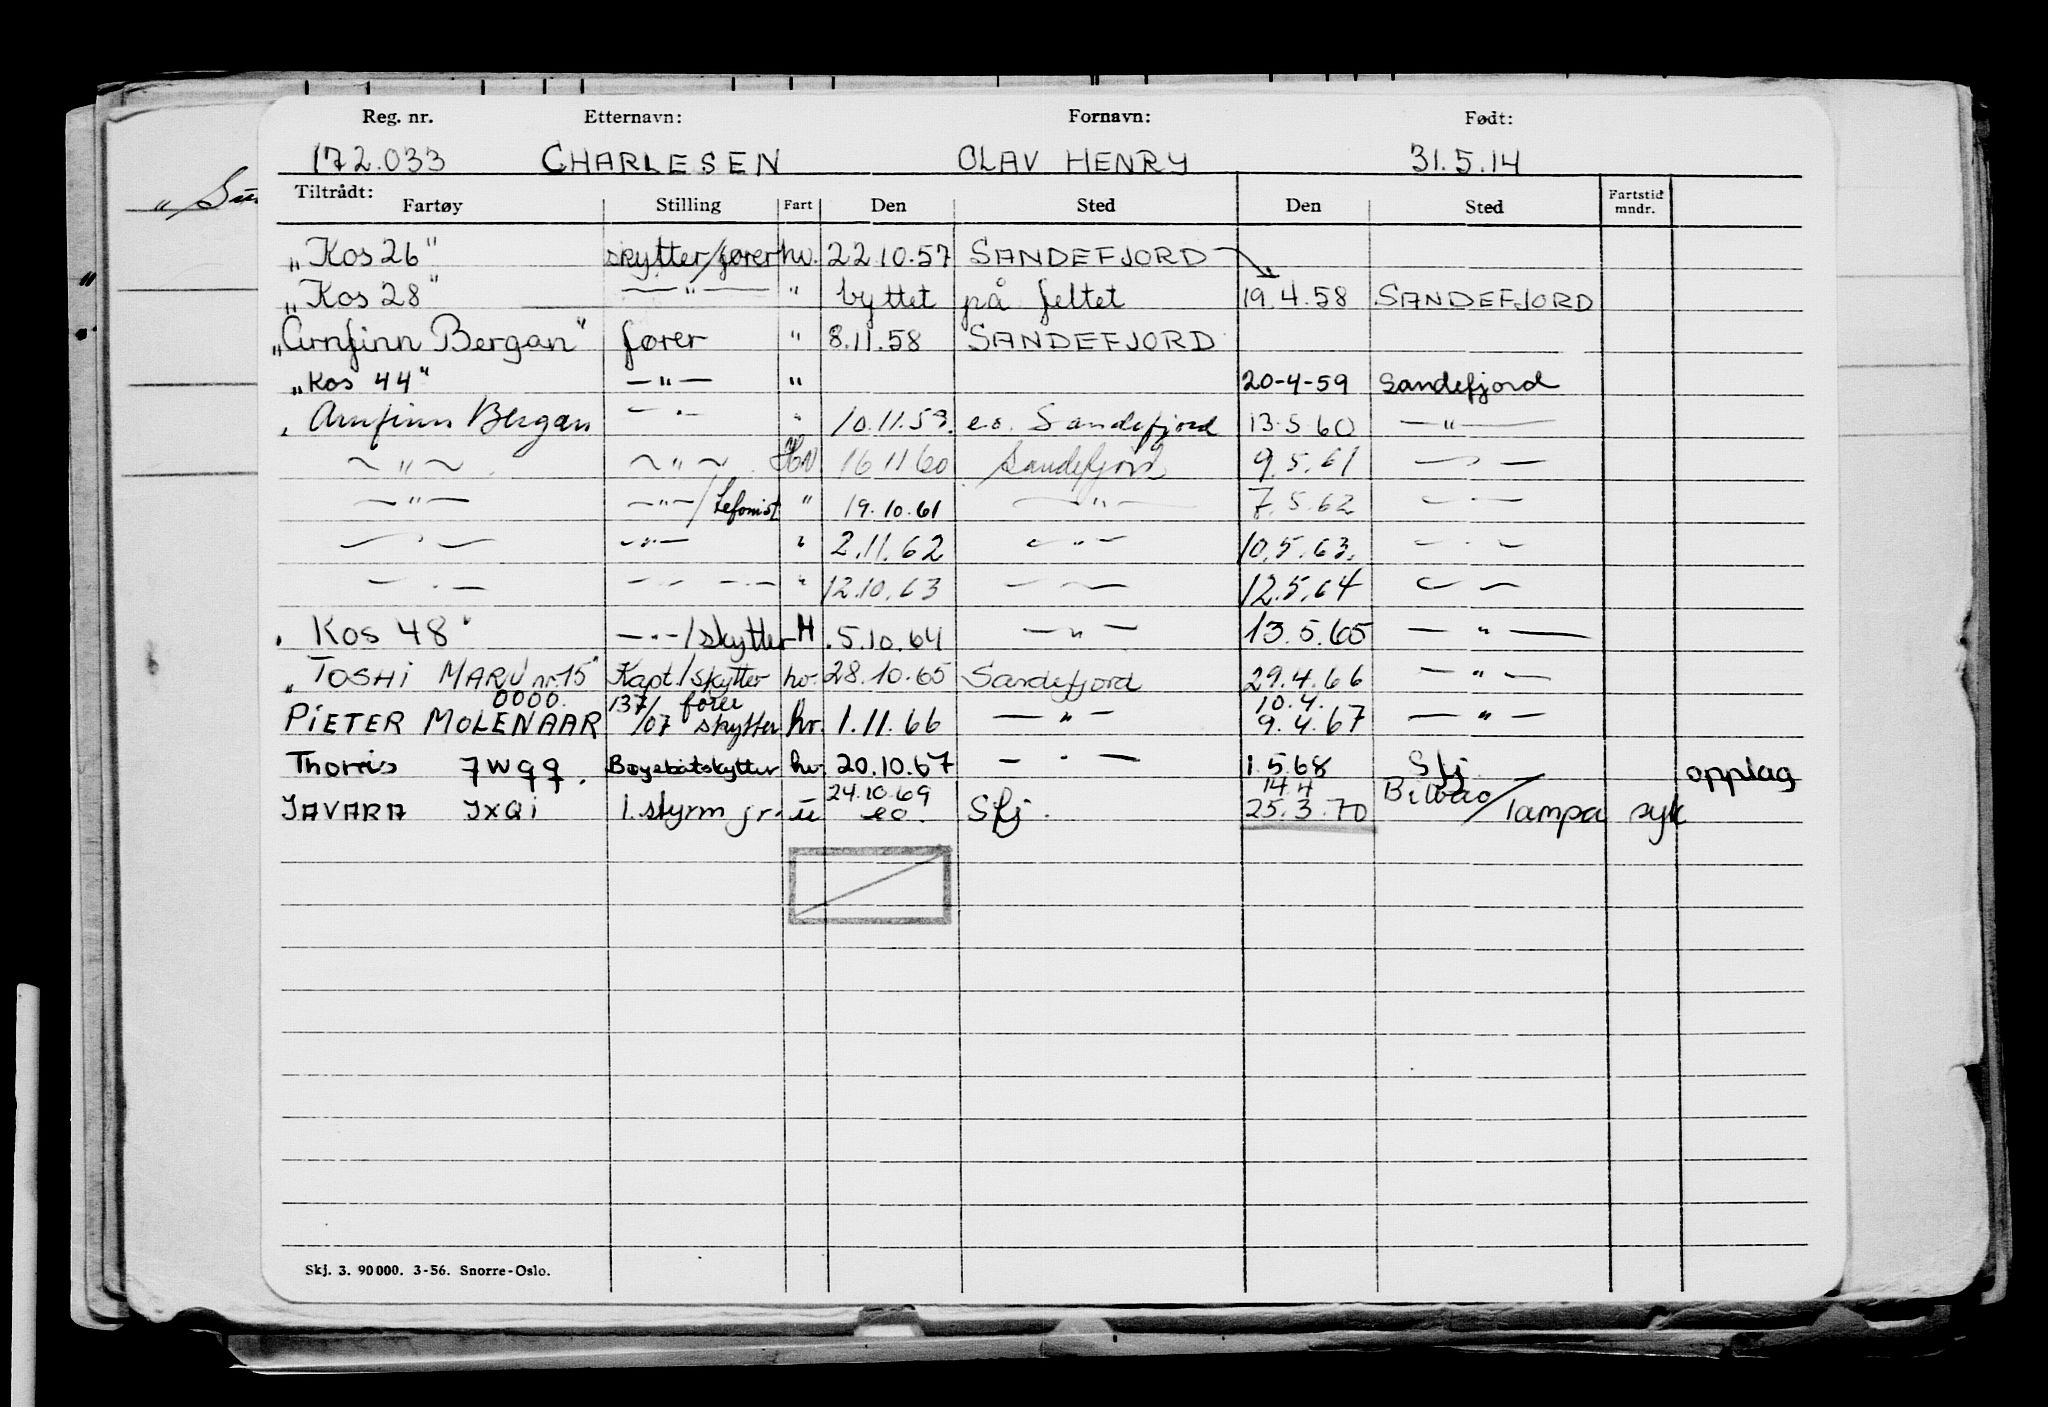 Reg. nr. Etternavn: Fornavn: Født:
172.033 CHARLESEN OLAV HENRY 31.5.14
Tiltrådt:
Fartøy Stilling Fart Den Sted Den Sted Fartstid mndr.
„Kos 26" skytter/fører hv. 22.10.57 SANDEFJORD
„Kos 28" —"— " byttet på feltet 19.4.58 SANDEFJORD
„Arnfinn Bergan" fører " 8.11.58 SANDEFJORD
„Kos 44" —"— " 20-4-59 Sandefjord
„Arnfinn Bergan —"— " 10.11.59. e.o. Sandefjord 13.5.60 —"—
—"— —"— Hv 16 11 60 Sandefjord 9.5.61 —"—
—"— —"—/ " 19.10.61 —"— 7.5.62 —"—
—"— —"— " 2.11.62 —"— 10.5.63. —"—
—"— —"— —"— " 12.10.63 —"— 12.5.64 —"—
„Kos 48" —"—/skytter H .5.10.64 —"— 13.5.65 —"—
„TOSHI MARU nr. 15" Kapt/skytter hv. 28.10.65 Sandefjord 29.4.66 —"—
0000. 137/ fører 10.4.
PIETER MOLENAAR /07 skytter hv. 1.11.66 —"— 9.4.67 —"—
Thorris JWQQ. Bøyebåtskytter hv. 20.10.67 —"— 1.5.68 Sfj opplag
24.10.69 14.4 Bilbao/
JAVARA JXQI 1. styrm jr. u eo. Sfj. 25.3.70 Tampa syk
Skj. 3. 90000. 3-56. Snorre-Oslo.